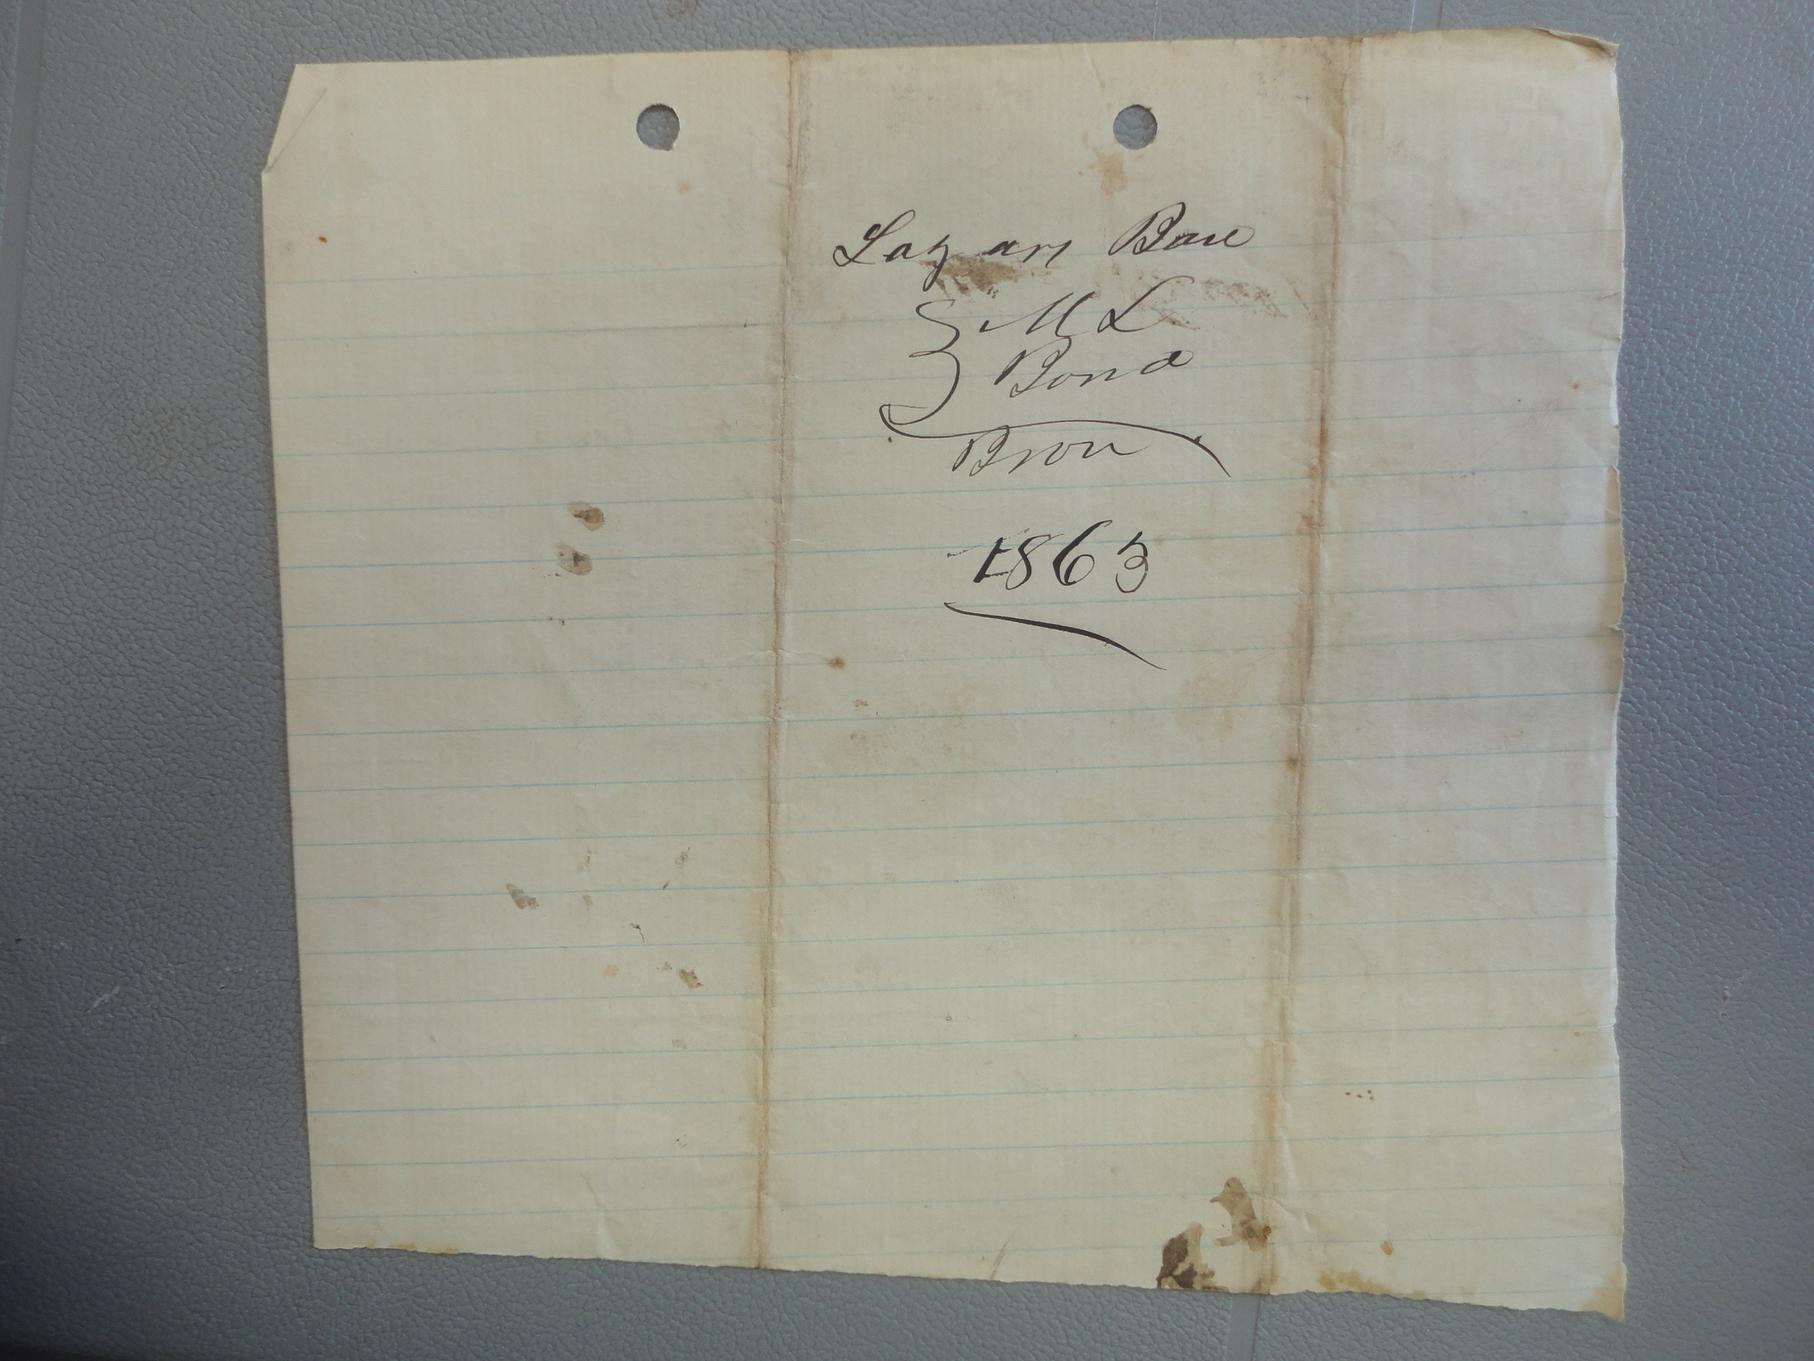 Lazarus Base
M L
Bond
Bron
1863